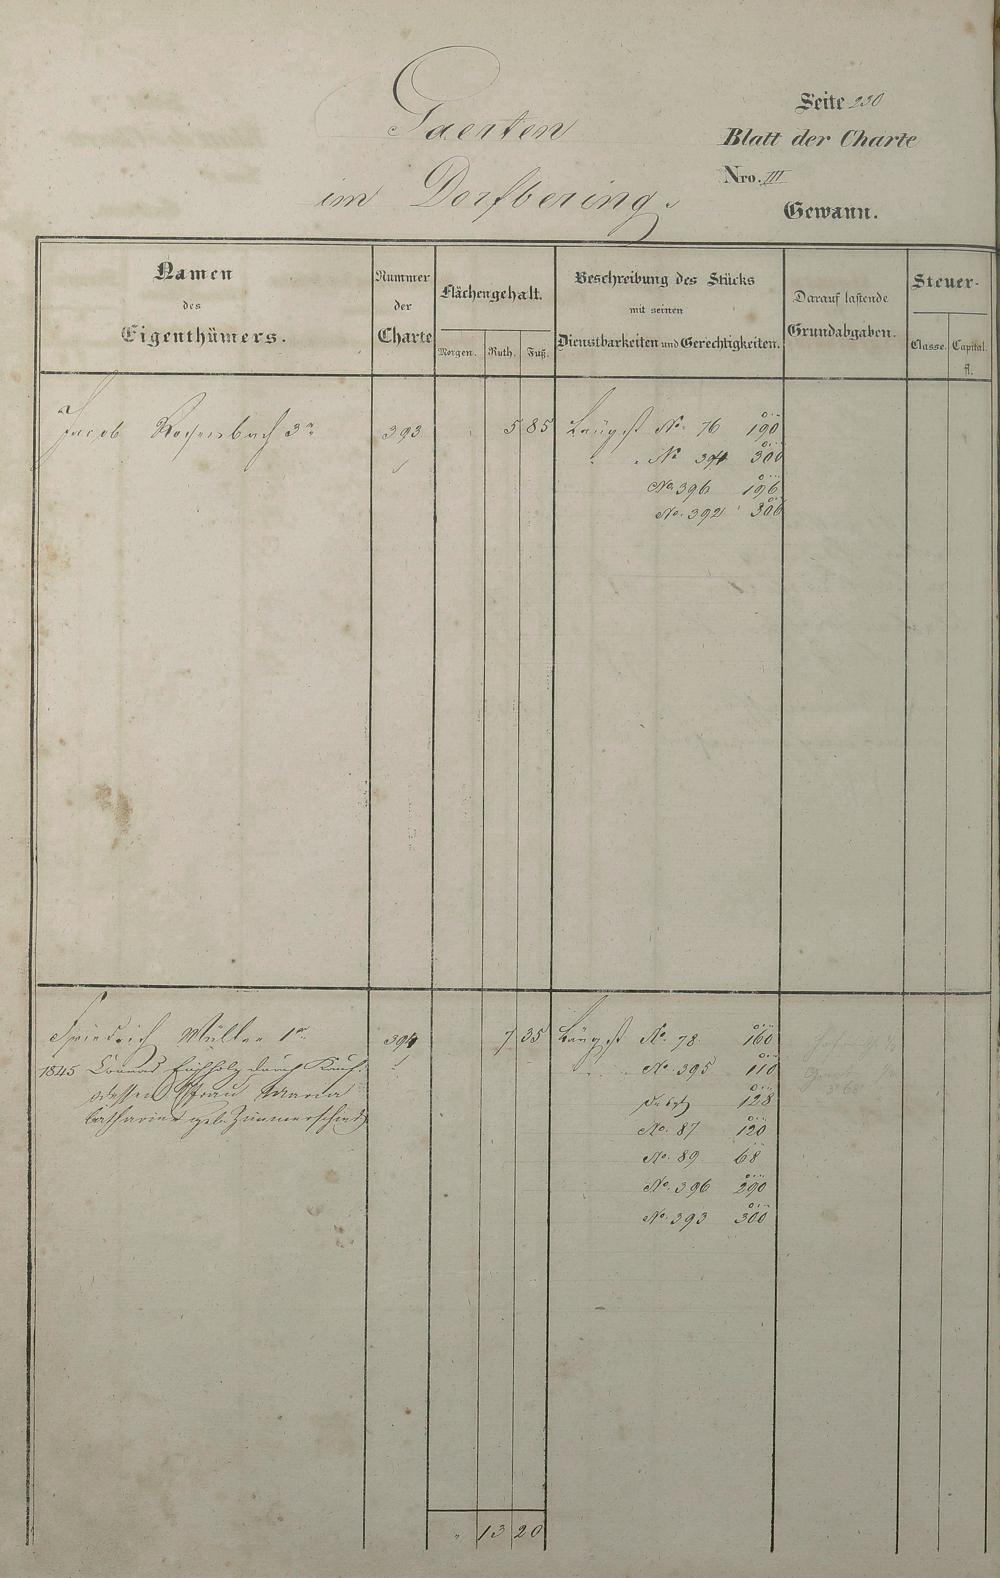 Gaerten
im Dorfbering.
Seite 230
Blatt der Charte
Nro. III
Gewann.
Namen
des
Eigenthümers.
Nummer
der
Charte
Flächengehalt.
Morgen. Ruth. Fuß.
Beschreibung des Stücks
mit seinen
Dienstbarkeiten und Gerechtigkeiten.
Darauf lastende
Grundabgaben.
Steuer-
Classe. Capital.
fl.
Jacob 3r 393 5 85 Längst No. 76 190
" " No 394 300
No. 396 196
No. 392 306
Friedrich Müller 1r 394 7 35 Längst No. 78 160
1845 Conrad Eichholz durch Kauf. " " No. 395 110
dessen Frau Maria 128
Catharine geb. Zimmerschied No. 87 120
No. 89 68
No. 396 290
No. 393 300
" 13 20